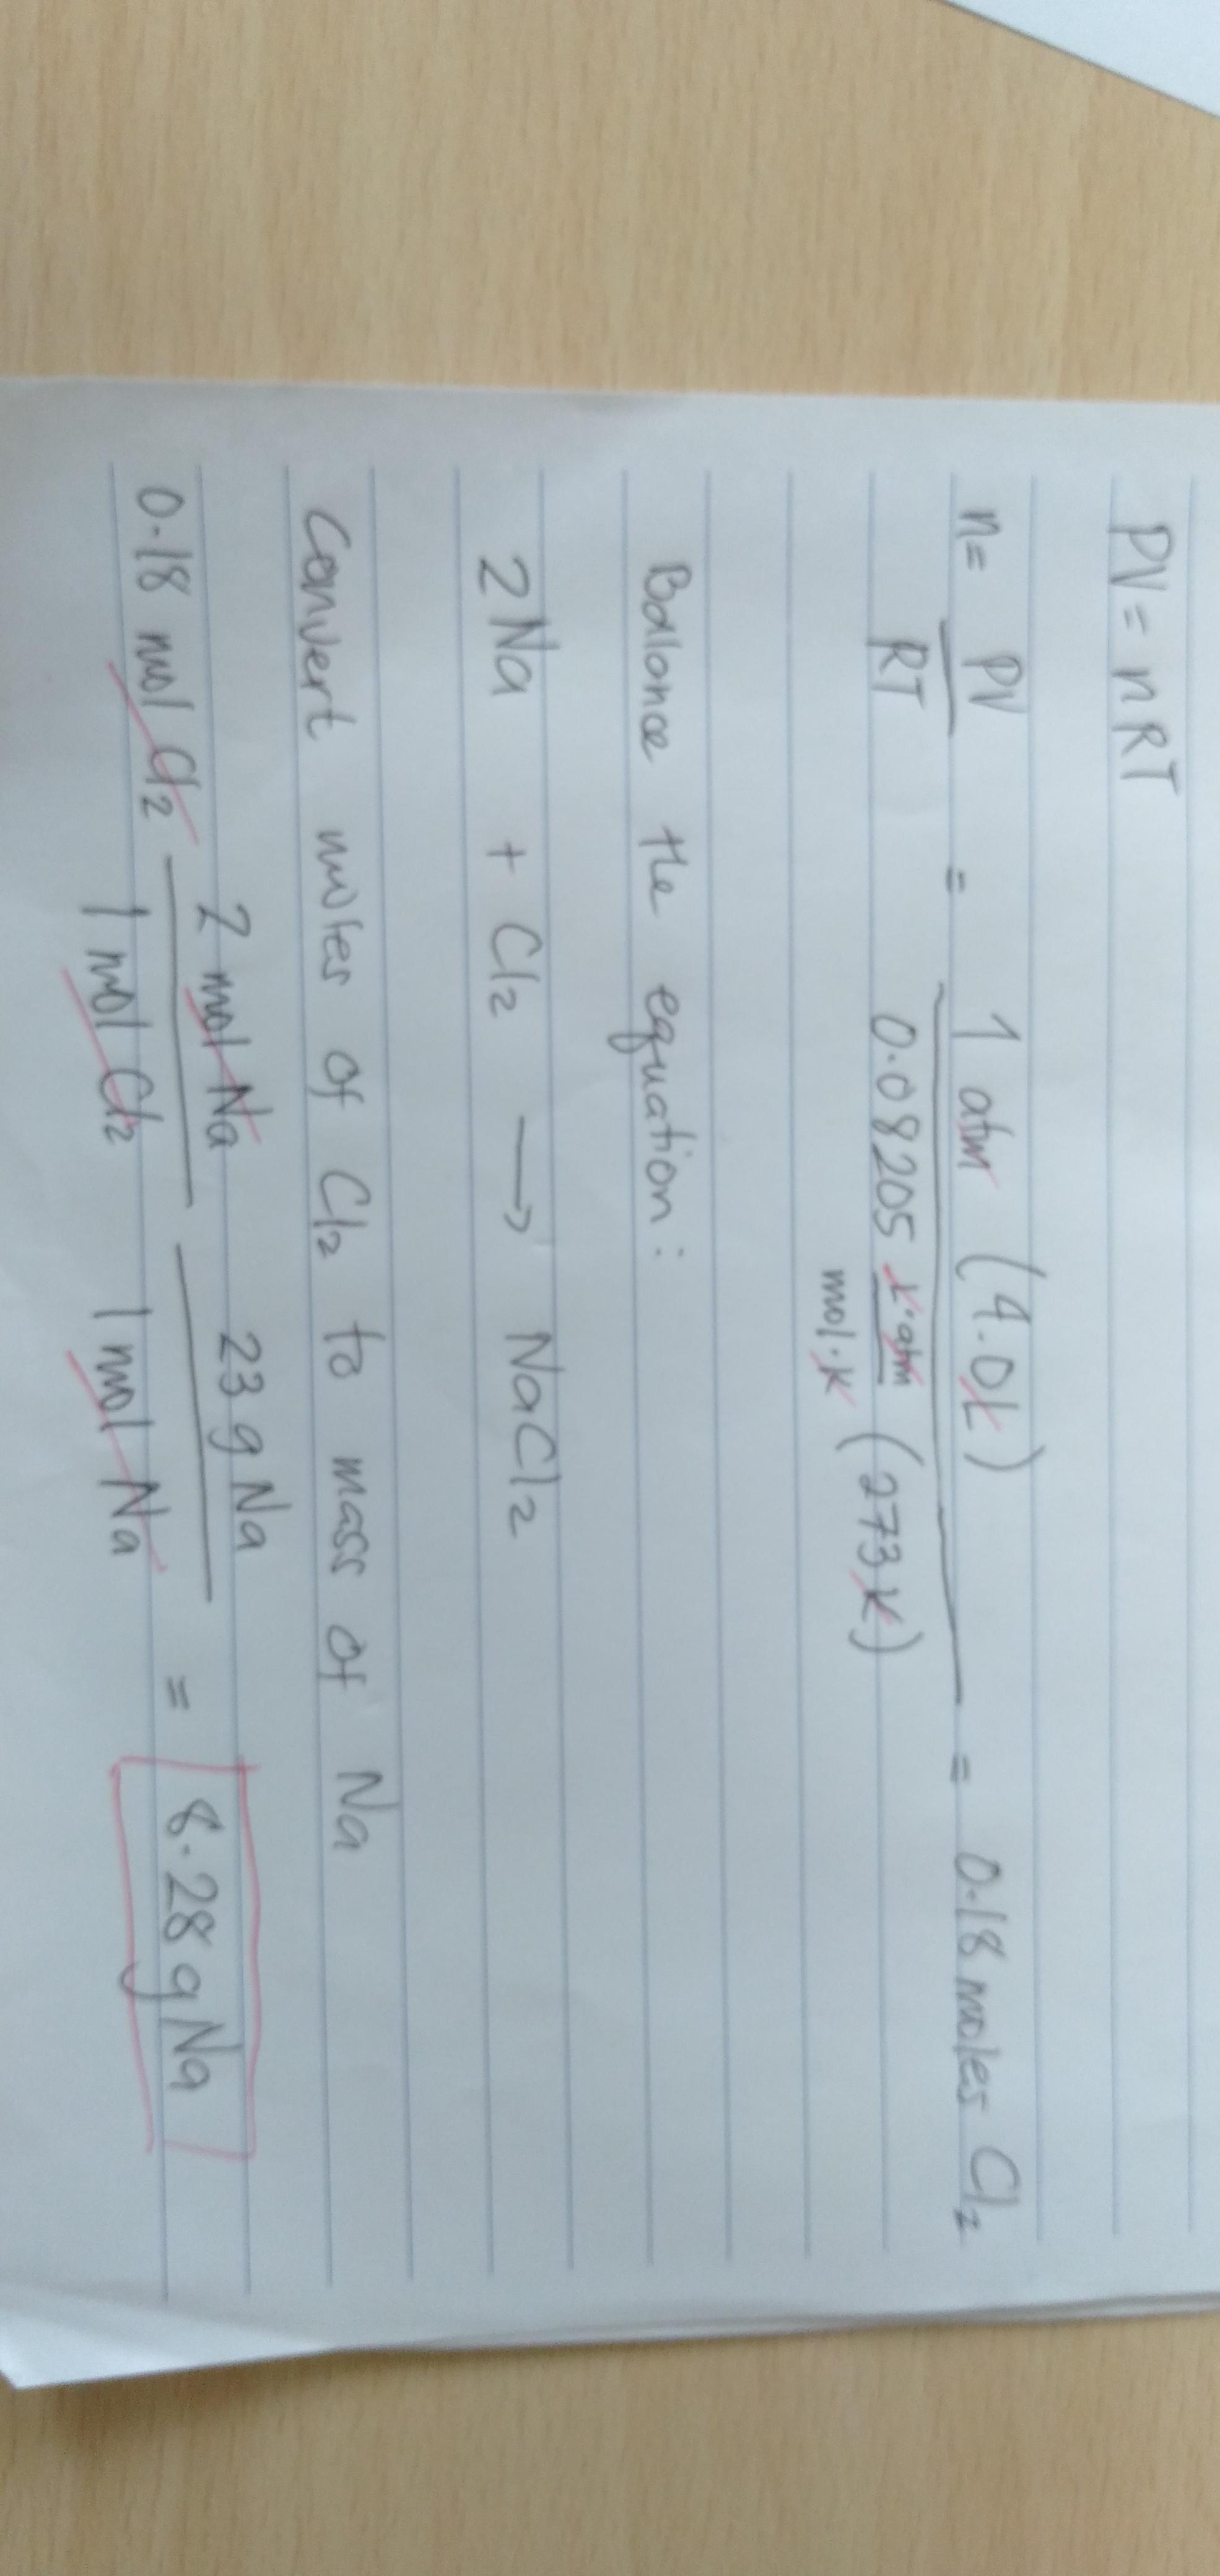 PV = nRT
n = PV / RT = 1 atm (4.0L) / 0.08205 L·atm / mol·K (273K) = 0.18 moles Cl₂
Ballance the equation:
2Na + Cl₂ → NaCl₂
Convert moles of Cl₂ to mass of Na
0.18 mol Cl₂ 2 mol Na / 1 mol Cl₂ 23 g Na / 1 mol Na = 8.28 g Na